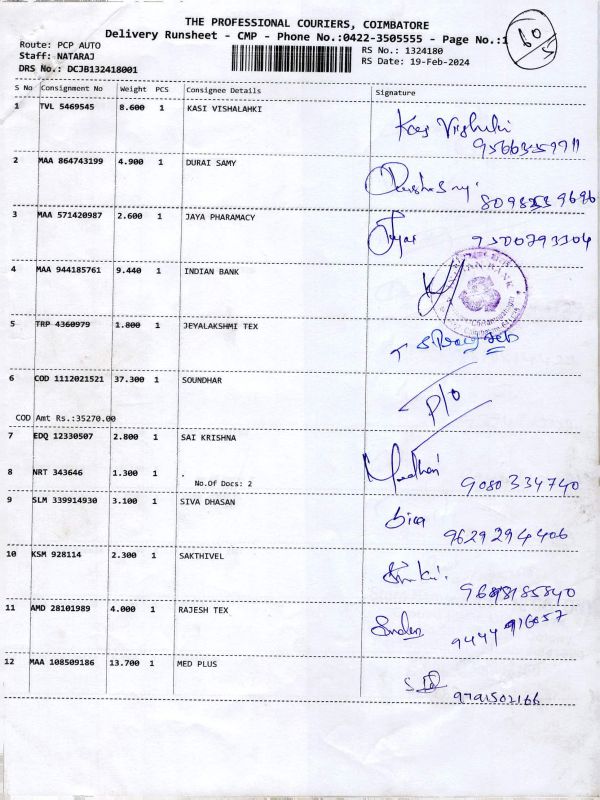 THE PROFESSIONAL COURIERS, COIMBATORE
Delivery Runsheet - CMP - Phone No.:0422-3505555 - Page No.:1
Route: PCP AUTO
Staff: NATARAJ
DRS No.: DCJB132418001
RS No.: 1324180
RS Date: 19-Feb-2024
S No Consignment No Weight PCS Consignee Details Signature
1 TVL 5469545 8.600 1 KASI VISHALAHKI
2 MAA 864743199 4.900 1 DURAI SAMY
3 MAA 571420987 2.600 1 JAYA PHARAMACY
9500293304
4 MAA 944185761 9.440 1 INDIAN BANK
5 TRP 4360979 1.800 1 JEYALAKSHMI TEX
6 COD 1112021521 37.300 1 SOUNDHAR
P/O
COD Amt Rs.:35270.00
7 EDQ 12330507 2.800 1 SAI KRISHNA
8 NRT 343646 1.300 1 .
No.Of Docs: 2
9080334740
9 SLM 339914930 3.100 1 SIVA DHASAN
Siva
9629294406
10 KSM 928114 2.300 1 SAKTHIVEL
11 AMD 28101989 4.000 1 RAJESH TEX
12 MAA 108509186 13.700 1 MED PLUS
9791502166